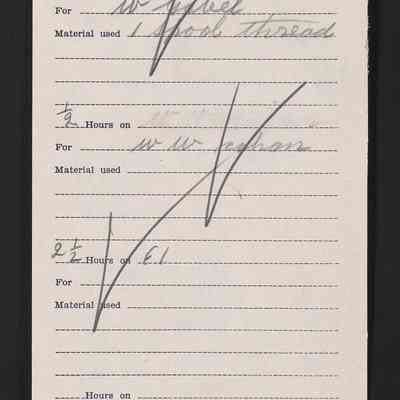 For W
Material used 1 spool thread
½ Hours on
For W W
Material used
2 ½ Hours on E 1
For
Material used
Hours on